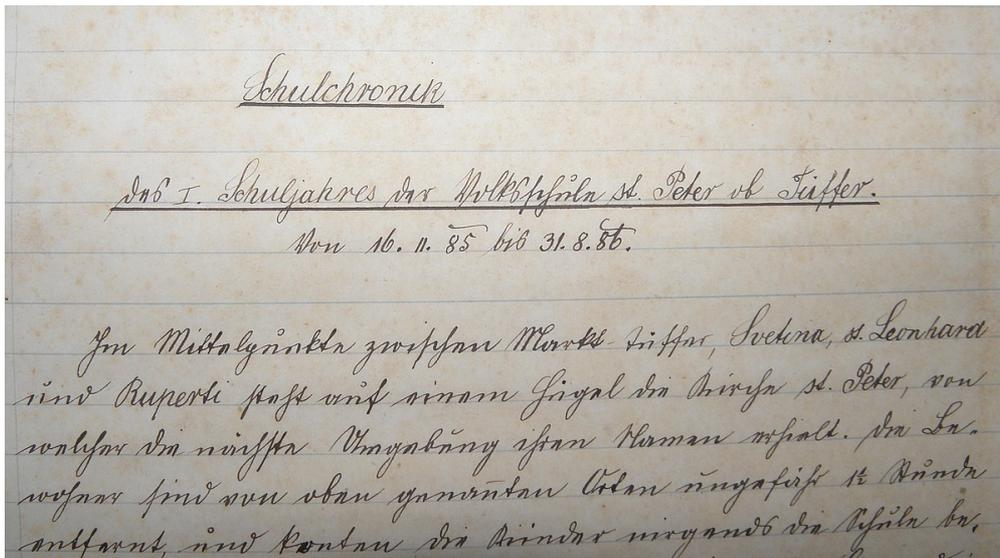 Schulchronik
des I. Schuljahres der Volksschule st. Peter ob Tüffer.
Von 16. 11. 85 bis 31. 8. 86.
Im Mittelpunkte zwischen Markt-Tüffer, Svetina, st. Leonhard
und Ruperti steht auf einem Hügel die Kirche st. Peter, von
welcher die nächste Umgebung ihren Namen erhielt. Die Be-
wohner sind von oben genanten Orten ungefähr 1½ Stunde
entfernt, und konten die Kinder nirgends die Schule be-